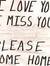 E LOVE YOU
E MISS YOU
PLEASE
OME HOME